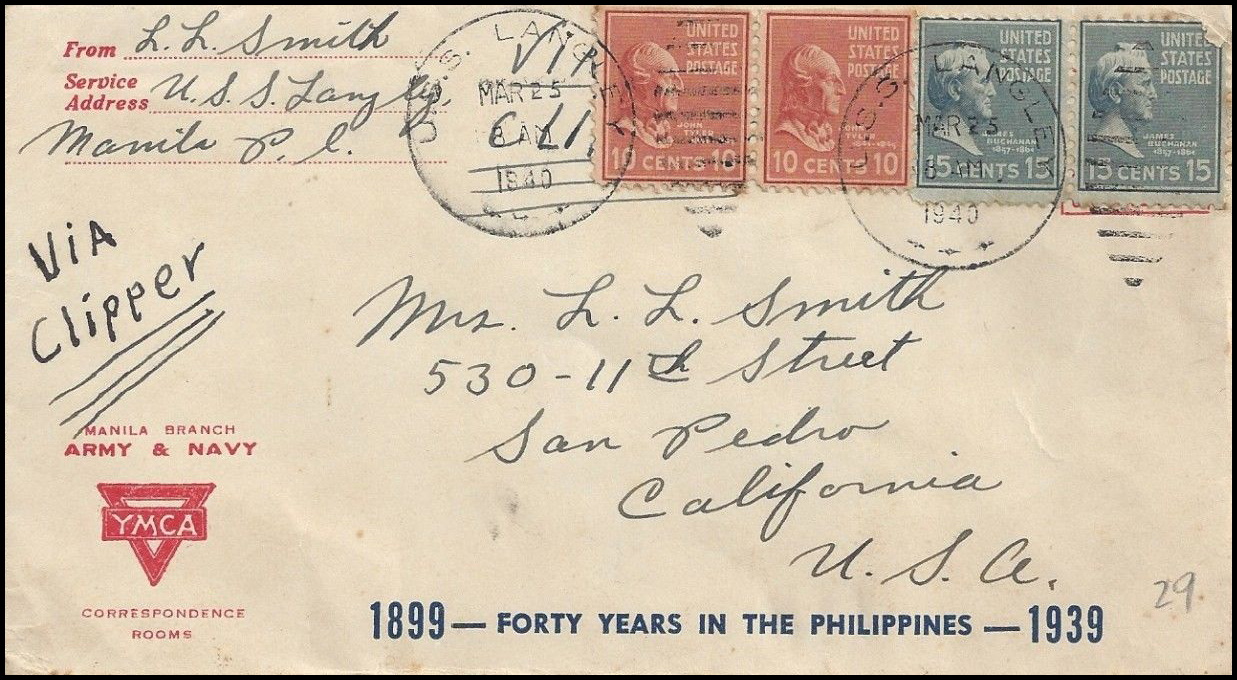 From L. L. Smith
Service Address U. S. S. Langley,
Manila P. I.
Via
Clipper
U.S.S. LANGLEY
MAR 25
8 AM
1940
VIA
CLI
UNITED STATES POSTAGE
JOHN TYLER
10 CENTS 10
UNITED STATES POSTAGE
JOHN TYLER
1841-1845
10 CENTS 10
UNITED STATES POSTAGE
JAMES BUCHANAN
1857-1861
15 CENTS 15
UNITED STATES POSTAGE
JAMES BUCHANAN
1857-1861
15 CENTS 15
U.S.S. LANGLEY
MAR 25
8 AM
1940
MANILA
Mrs. L. L. Smith
530-11th Street
San Pedro
California
U. S. A.
MANILA BRANCH
ARMY & NAVY
YMCA
CORRESPONDENCE
ROOMS
1899 — FORTY YEARS IN THE PHILIPPINES — 1939
29